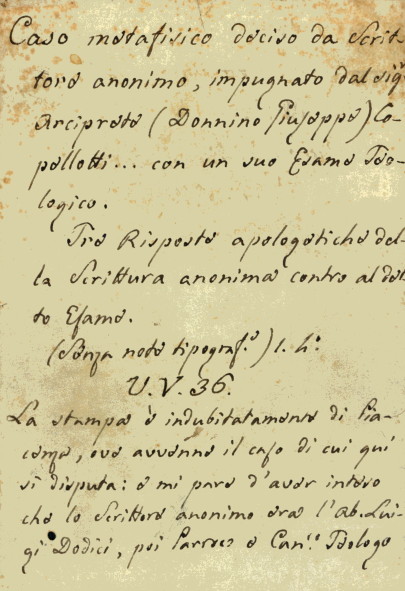 Caso metafisico deciso da Scrit-
tore anonimo, impugnato dal sig.
Arciprete (Donnino Giuseppe) Co-
pellotti... con un suo Esame Teo-
logico.
Tre Risposte apologetiche del-
la Scrittura anonima contro al det-
to Esame.
(Senza note tipograf.e) 1. h.o
U. V. 36.
La stampa è indubitatamente di Pia-
cenza, ove avvenne il caso di cui quì
si disputa: e mi pare d'aver inteso
che lo Scrittore anonimo era l'Ab. Lui-
gi Dodici, poi Parroco e Can.co Teologo